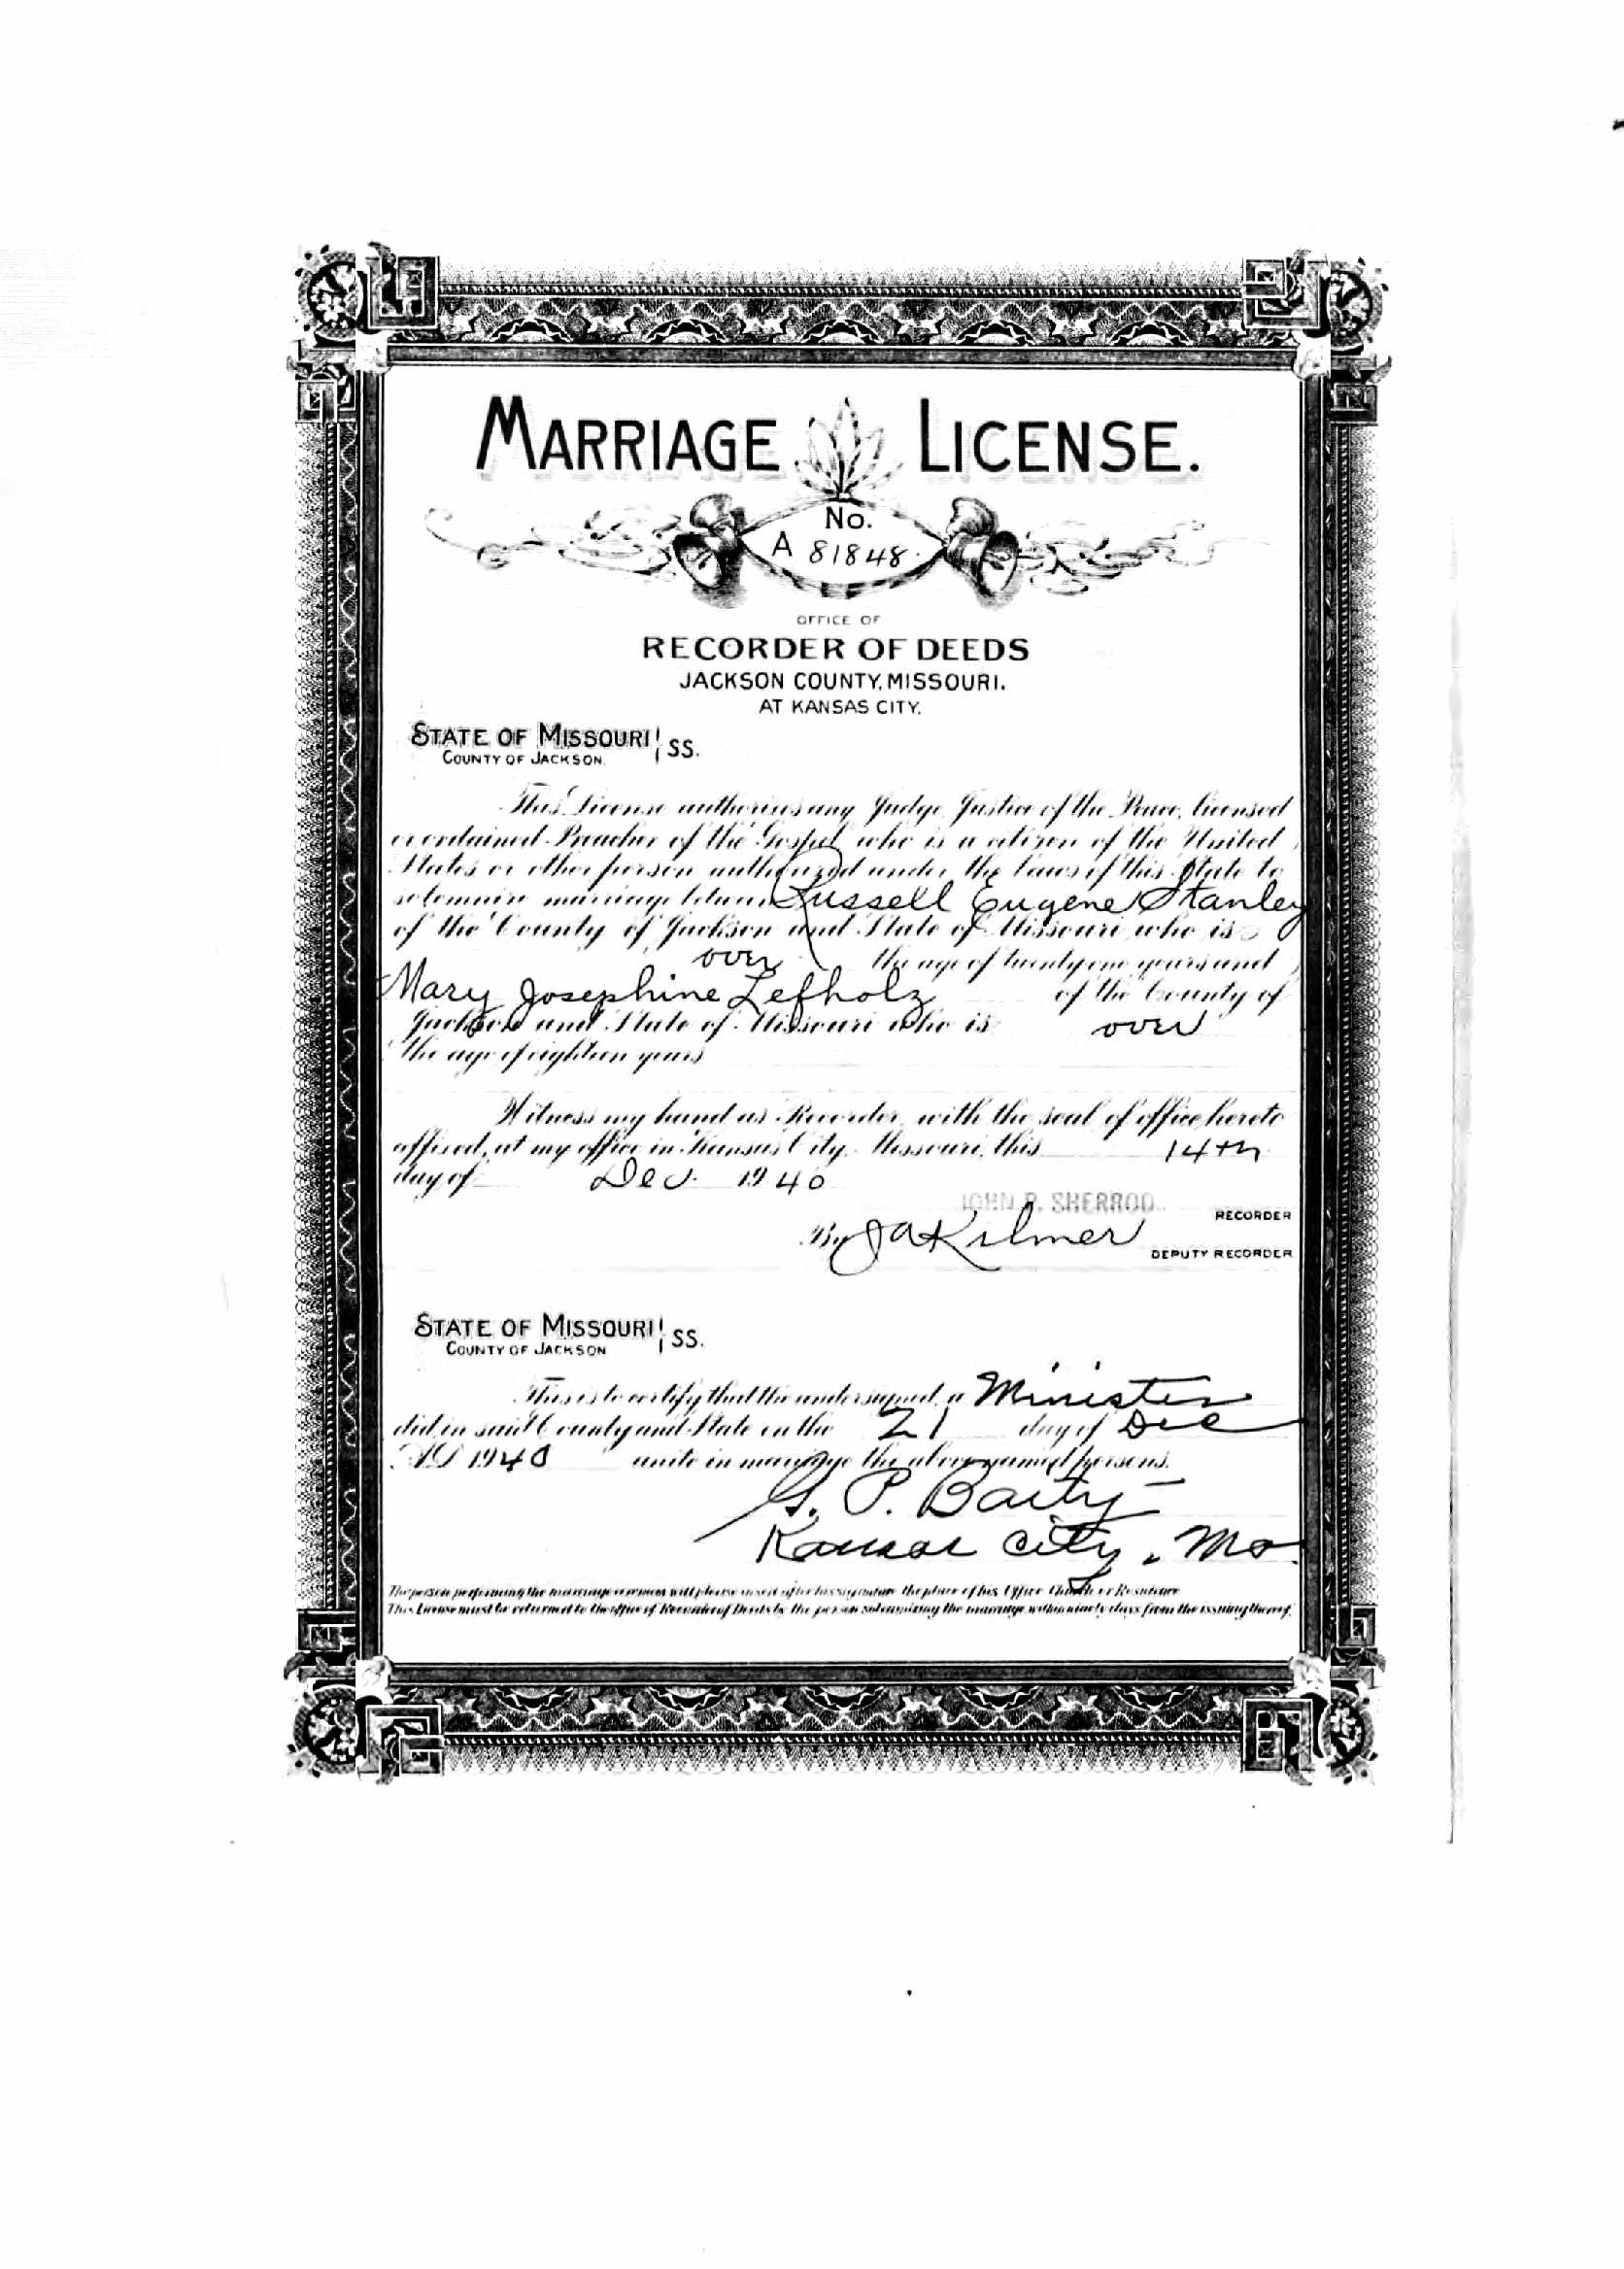 MARRIAGE LICENSE.
No.
A 81848
OFFICE OF
RECORDER OF DEEDS
JACKSON COUNTY, MISSOURI.
AT KANSAS CITY.
STATE OF MISSOURI
COUNTY OF JACKSON
SS.
This License authorizes any Judge, Justice of the Peace, licensed
or ordained Preacher of the Gospel, who is a citizen of the United
States or other person authorized under the laws of this State to
solemnize marriage between Russell Eugene Stanley
of the County of Jackson and State of Missouri who is
over the age of twenty one years and
Mary Josephine Lefholz of the County of
Jackson and State of Missouri who is over
the age of eighteen years
Witness my hand as Recorder, with the seal of office hereto
affixed, at my office in Kansas City, Missouri, this 14th
day of Dec. 1940
JOHN P. SHERROD RECORDER
By J A Kilmer DEPUTY RECORDER
STATE OF MISSOURI
COUNTY OF JACKSON
SS.
This is to certify that the undersigned, a Minister
did in said County and State on the 21 day of Dec
A.D. 1940 unite in marriage the above named persons.
G. P. Baity
Kansas City, Mo.
The person performing the marriage ceremony will please insert after his signature the place of his Office Church or Residence
This License must be returned to the office of Recorder of Deeds by the person solemnizing the marriage within ninety days from the issuing thereof.